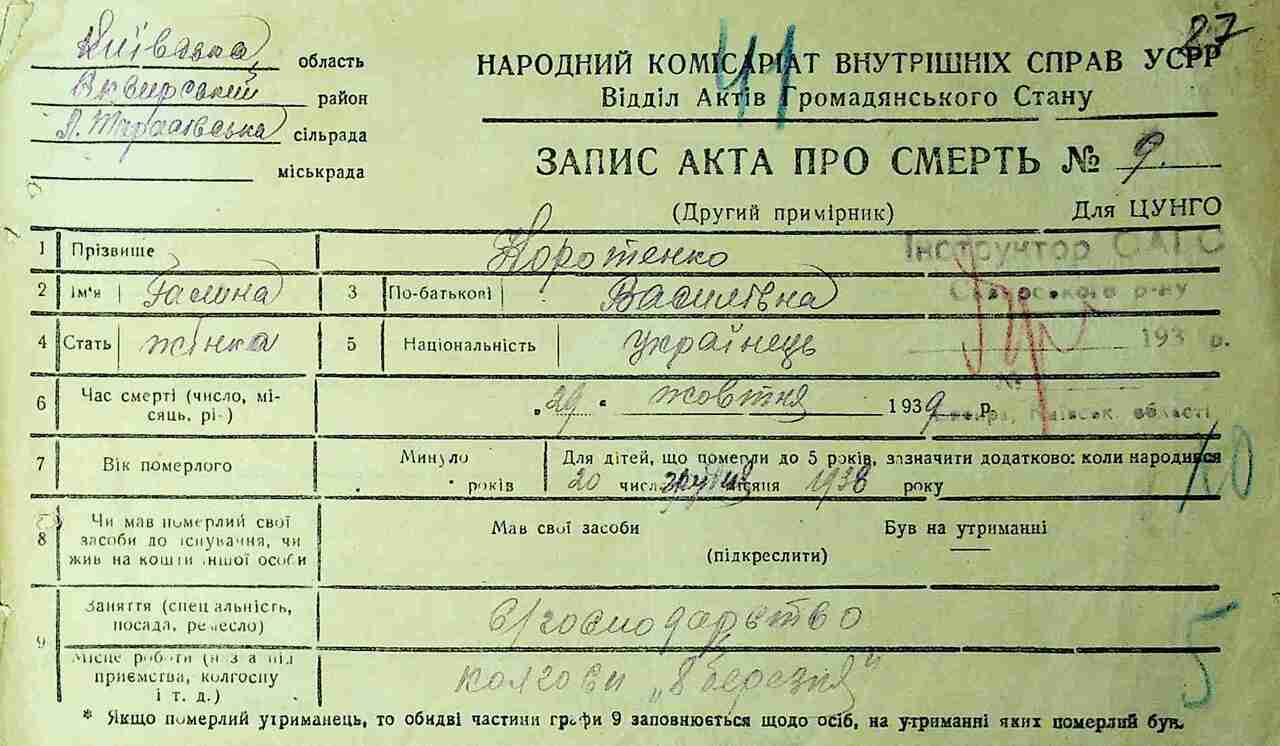 Київська область
Сквирський район
А. Тарасівська сільрада
міськрада
27
41
НАРОДНИЙ КОМІСАРІАТ ВНУТРІШНІХ СПРАВ УСРР
Відділ Актів Громадянського Стану
ЗАПИС АКТА ПРО СМЕРТЬ № 9.
(Другий примірник) Для ЦУНГО
Інструктор
1 Прізвище Коротенко
2 Ім'я Галина 3 По-батькові Василівна
Сквирського р-ну
4 Стать жінка 5 Національність українець
193 р.
6 Час смерті (число, мі-сяць, рі-) „29" жовтня 1939 р.
Сквира, Київськ. області
7 Вік померлого Минуло років Для дітей, що померли до 5 років, зазначити додатково: коли народився
20 числа грудня місяця 1938 року
10
8 Чи мав померлий свої засоби до існування, чи жив на кошти іншої особи Мав свої засоби Був на утриманні
(підкреслити)
9 Заняття (спеціальність, посада, ремесло) с/господарство
5
Місце роботи (назва підприємства, колгоспу і т. д.) колгосп „8 березня"
* Якщо померлий утриманець, то обидві частини графи 9 заповнюється щодо осіб, на утриманні яких померлий був.